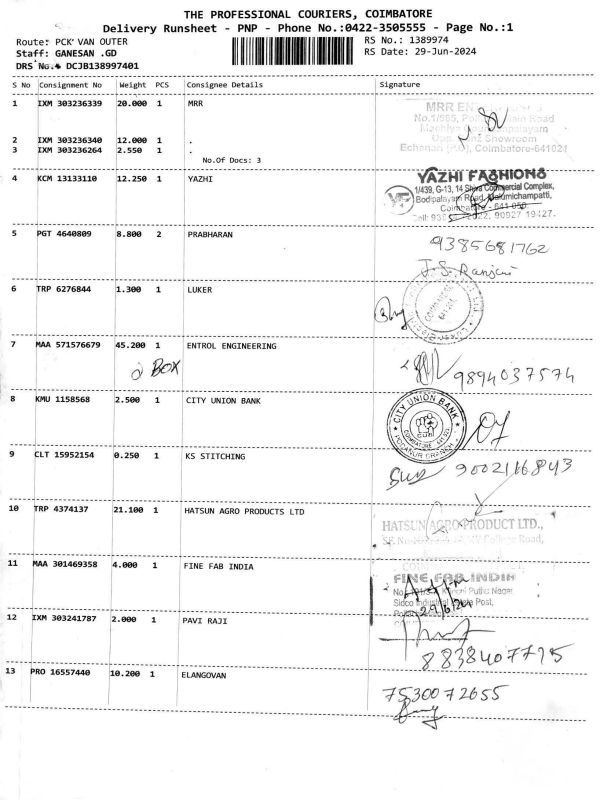 THE PROFESSIONAL COURIERS, COIMBATORE
Delivery Runsheet - PNP - Phone No.:0422-3505555 - Page No.:1
Route: PCK VAN OUTER
RS No.: 1389974
Staff: GANESAN .GD
RS Date: 29-Jun-2024
DRS No. DCJB138997401
S No Consignment No Weight PCS Consignee Details Signature
1 IXM 303236339 20.000 1 MRR
MRR
No.1/585, Main Road
2 IXM 303236340 12.000 1 .
Showroom
3 IXM 303236264 2.550 1 .
Coimbatore-641024
No.Of Docs: 3
4 KCM 13133110 12.250 1 YAZHI
YAZHI FASHIONS
1/439, G-13, 14 Shiva Commercial Complex,
Bodipalayam Road, Malumichampatti,
Coimbatore - 641 050.
Cell: 90927 19427.
5 PGT 4640809 8.800 2 PRABHARAN
9385681762
J.S. Ranjani
6 TRP 6276844 1.300 1 LUKER
7 MAA 571576679 45.200 1 ENTROL ENGINEERING
2 BOX
9894037574
8 KMU 1158568 2.500 1 CITY UNION BANK
CITY UNION BANK
COIMBATORE
PODANUR BRANCH
9 CLT 15952154 0.250 1 KS STITCHING
9002116843
10 TRP 4374137 21.100 1 HATSUN AGRO PRODUCTS LTD
HATSUN AGRO PRODUCT LTD.,
College Road,
11 MAA 301469358 4.000 1 FINE FAB INDIA
FINE FAB INDIA
Nagar,
Sidco Industrial Estate Post,
29/6/24
12 IXM 303241787 2.000 1 PAVI RAJI
8838407715
13 PRO 16557440 10.200 1 ELANGOVAN
7530072655